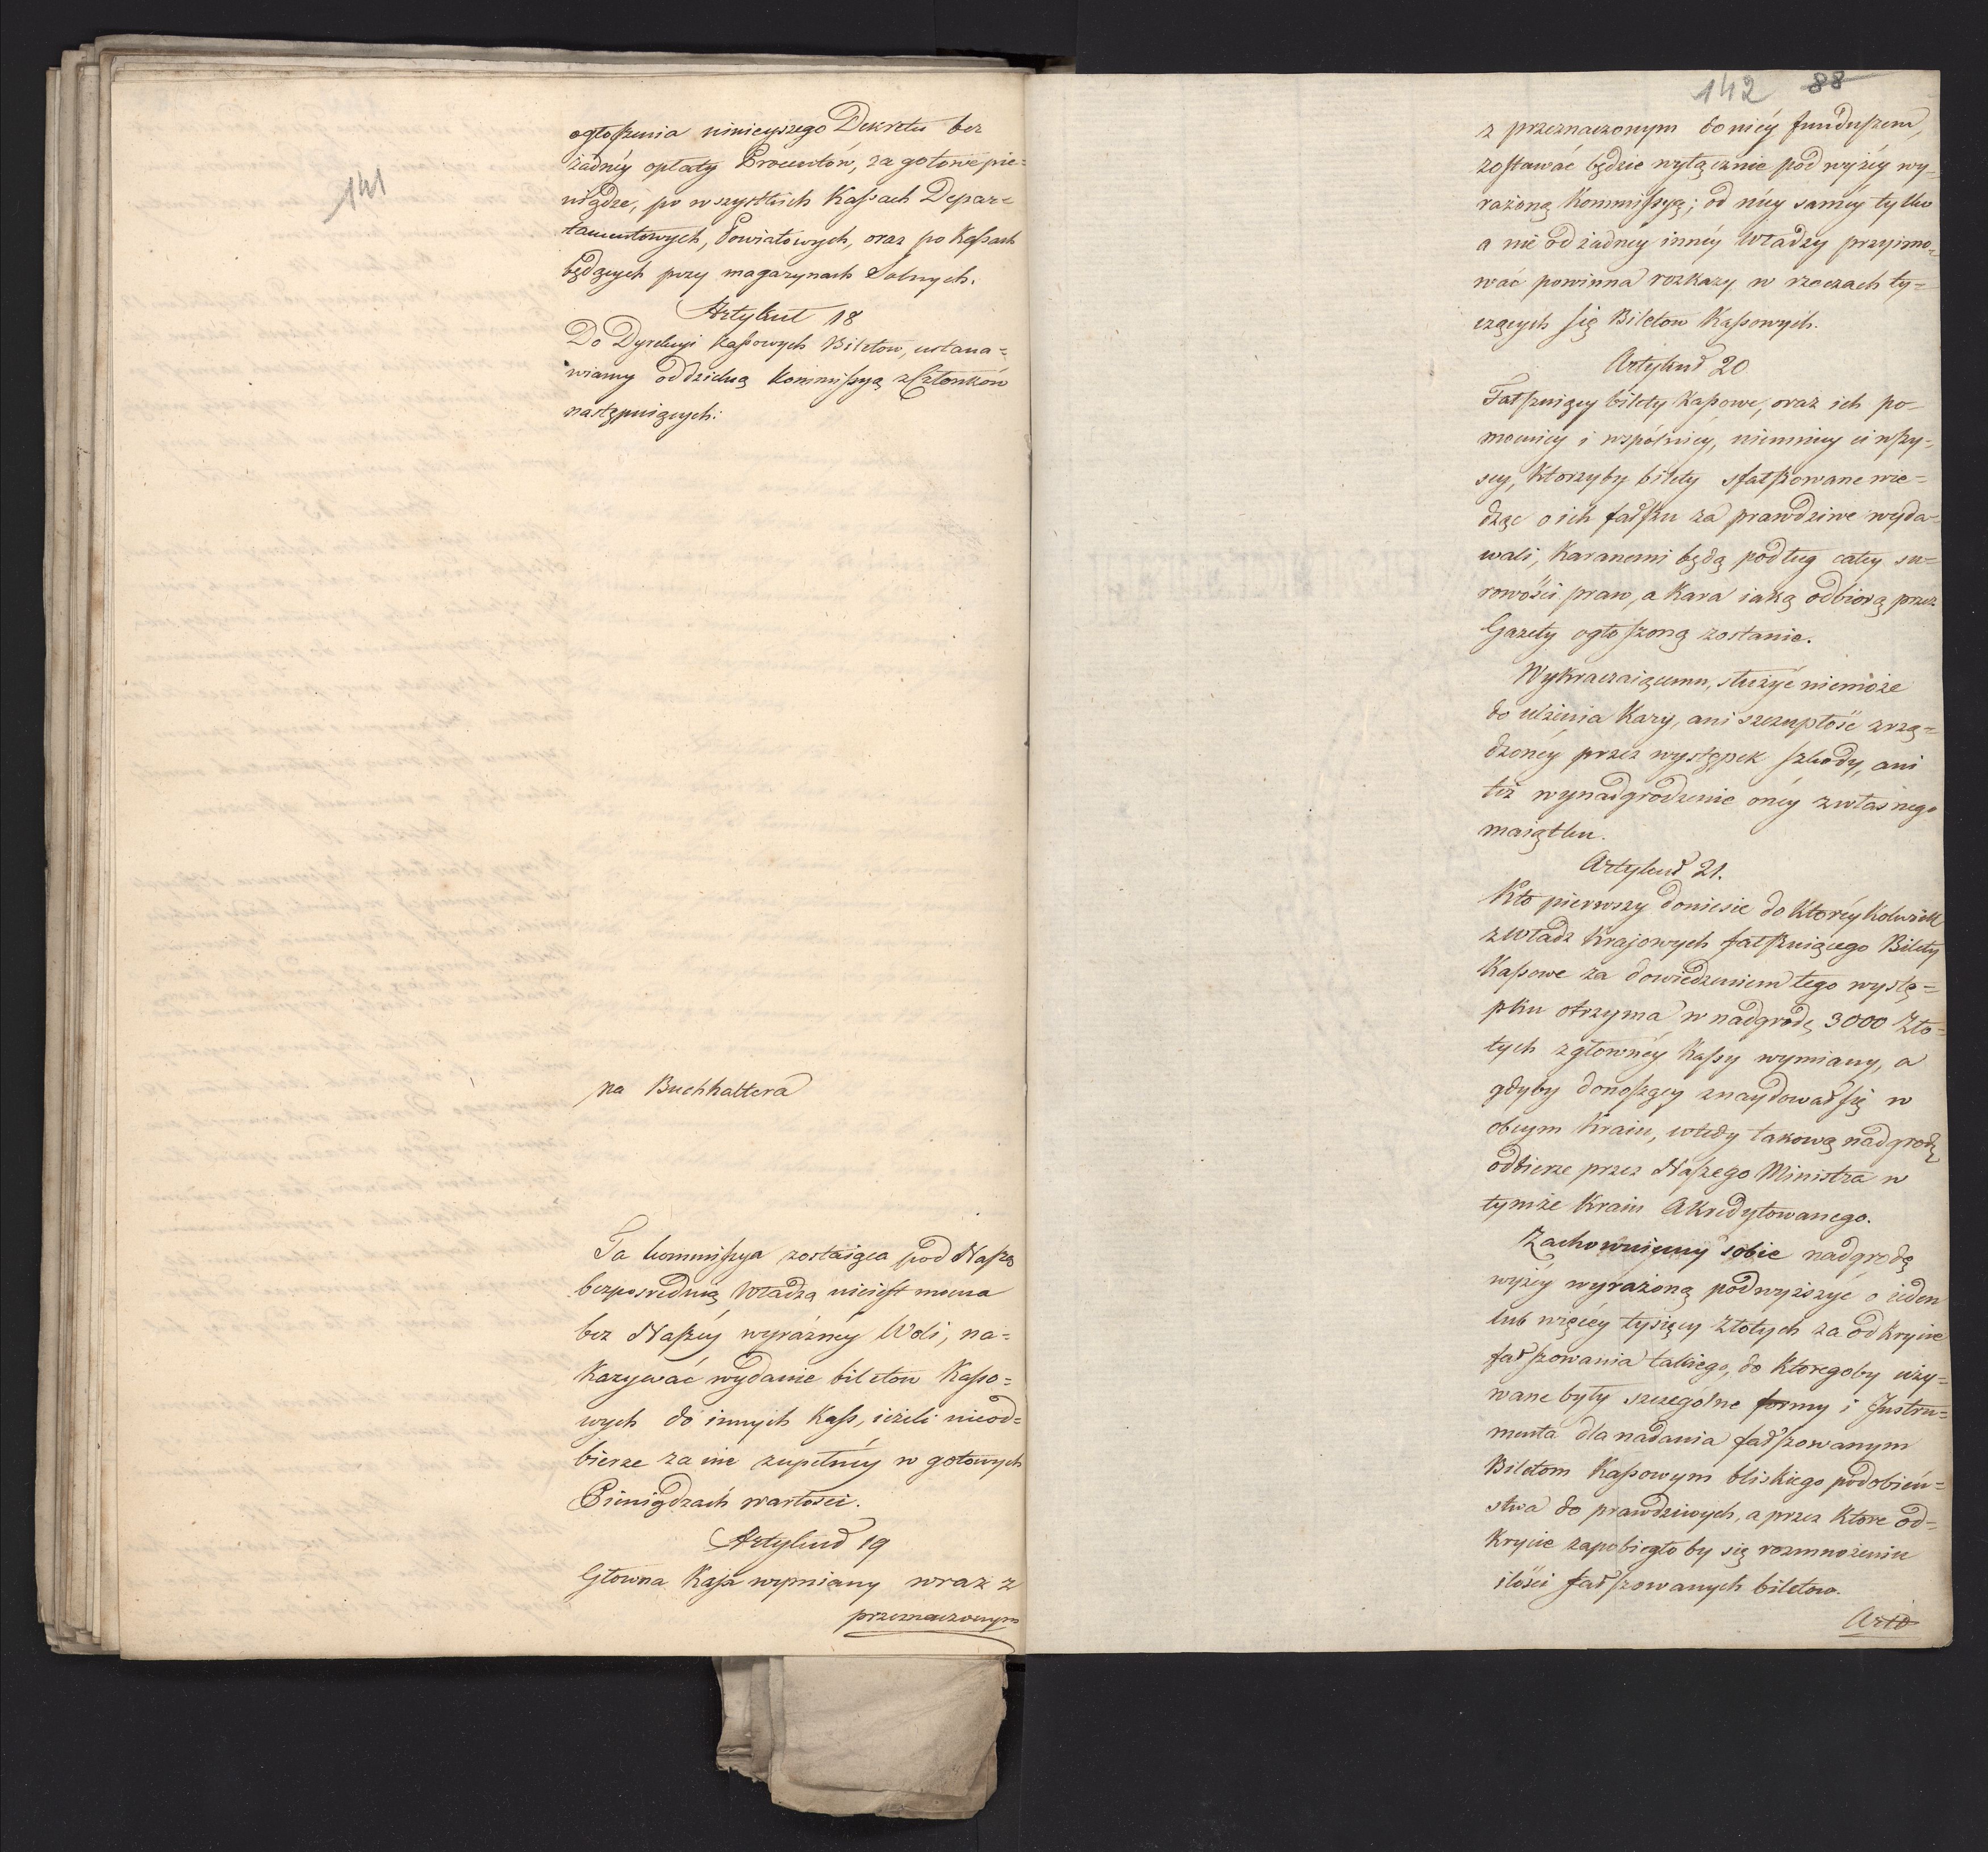 141
ogłoszenia ninieyszego Dekretu bez
żadnéy opłaty Procentów, za gotowe pie=
niądze, po wszystkich Kassach Depar=
tamentowych, Powiatowych, oraz po Kassach
będących przy magazynach Solnych.
Artykuł 18
Do Dyrekcyi Kassowych Biletow, ustana=
wiamy oddzielną Kommissyą z Członków
następuiących:
na Buchhaltera
Ta kommissya zostaiąca pod Naszą
bezpośrednią Władzą nieiest mocna
bez Naszéy wyráznéy Woli, na=
kazywać wydanie biletow Kasso=
wych do innych Kass, ieżeli nieod=
bierze za nie zupełnéy w gotowych
Pieniądzach wartości.
Artykuł 19
Głowna Kassa wymiany wraz z
przeznaczonym
142 88
z przeznaczonym do niéy funduszem,
zostawać będzie wyłącznie pod wyżéy wy=
rażoną Kommissyą; od niéy saméy tylko
a nie od żadnéy innéy Władzy przyimo=
wać powinna rozkazy w rzeczach ty=
czących się Biletow Kassowych.
Artykuł 20
Fałszuiący bilety Kassowe, oraz ich po=
mocnicy i wspólnicy, niemniey ci wszy=
scy, którzyby bilety sfałszowane wie=
dząc o ich fałszu za prawdziwe wyda=
wali, Karanemi będą podług całey su=
rowości praw, a Kara iaką odbiorą przez
Gazety ogłoszoną zostanie.
Wykraczaiącemu, służyć niemoże
do ulżenia Kary, ani szczupłość zrzą=
dzonéy przez występek szkody, ani
też wynadgrodzenie onéy z własnego
maiątku.
Artykuł 21.
Kto pierwszy doniesie do któréy kolwiek
z Władz Krajowych fałszuiącego Bilety
Kassowe za dowiedzeniem tego wystę=
pku otrzyma w nadgrodę 3000 Zło=
tych z głownéy Kassy wymiany, a
gdyby donoszący znaydował się w
obcym Kraiu, wtedy takową nadgrodę
odbierze przez Naszego Ministra w
tymże Kraiu Akredytowanego.
Zachowuiemy sobie nadgrodę
wyżéy wyrażoną podwyższyć o ieden
lub więcéy tysięcy Złotych za odkrycie
fałszowania takiego, do ktoregoby uży=
wane były szczególne formy i Instru=
menta dla nadania fałszowanym
Biletom Kassowym bliskiego podobień=
stwa do prawdziwych, a przez ktore od=
krycie zapobiegło by się rozmnożeniu
ilości fałszowanych biletow.